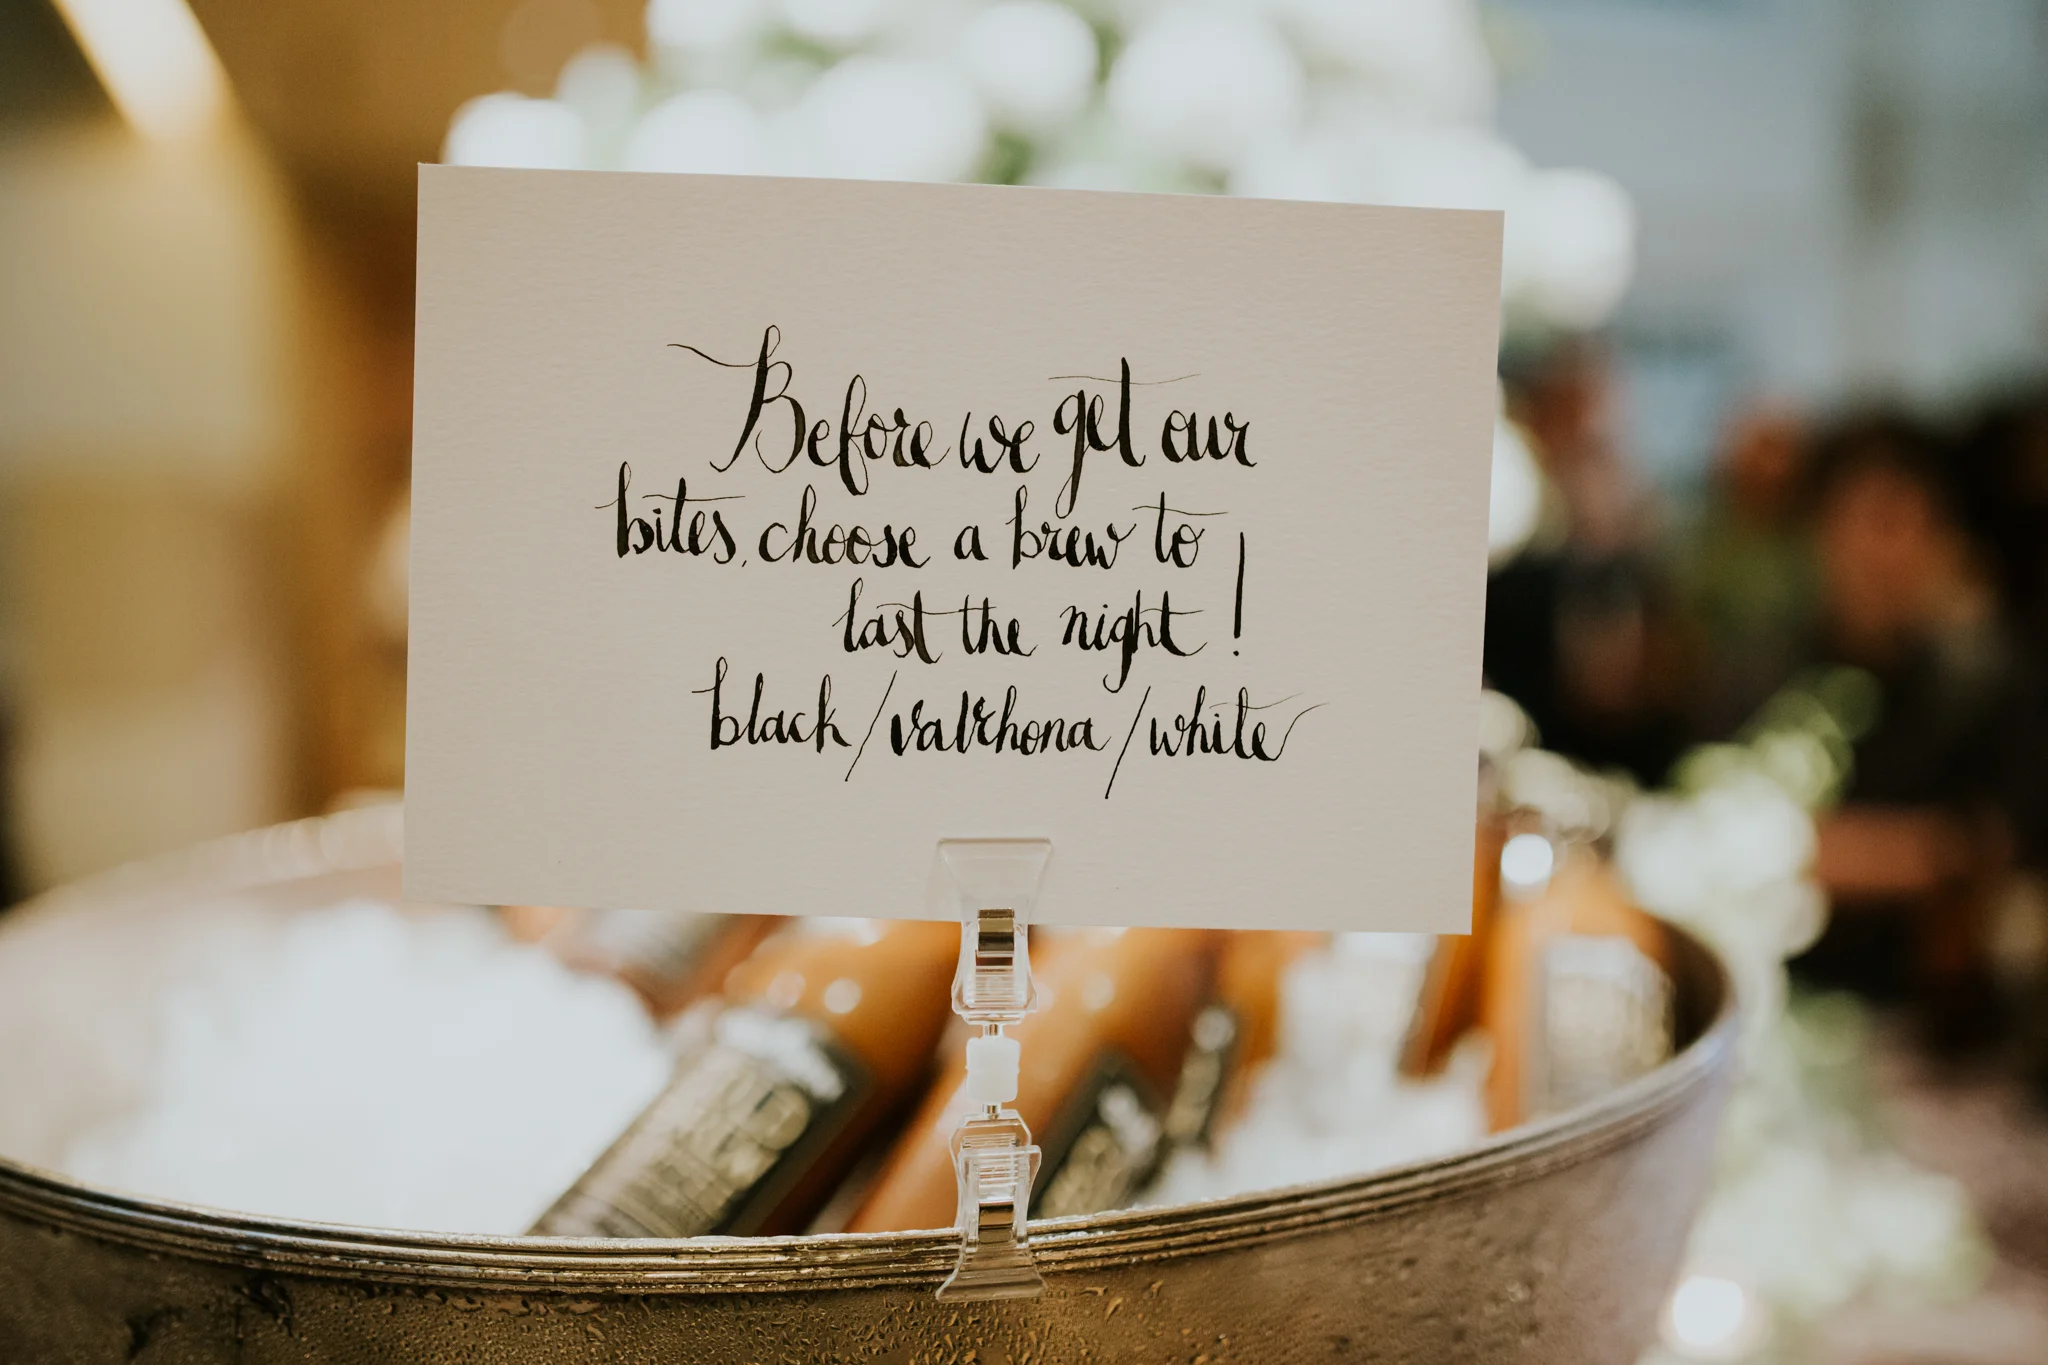 Before we get our
bites, choose a brew to
last the night!
black/valrhona/white